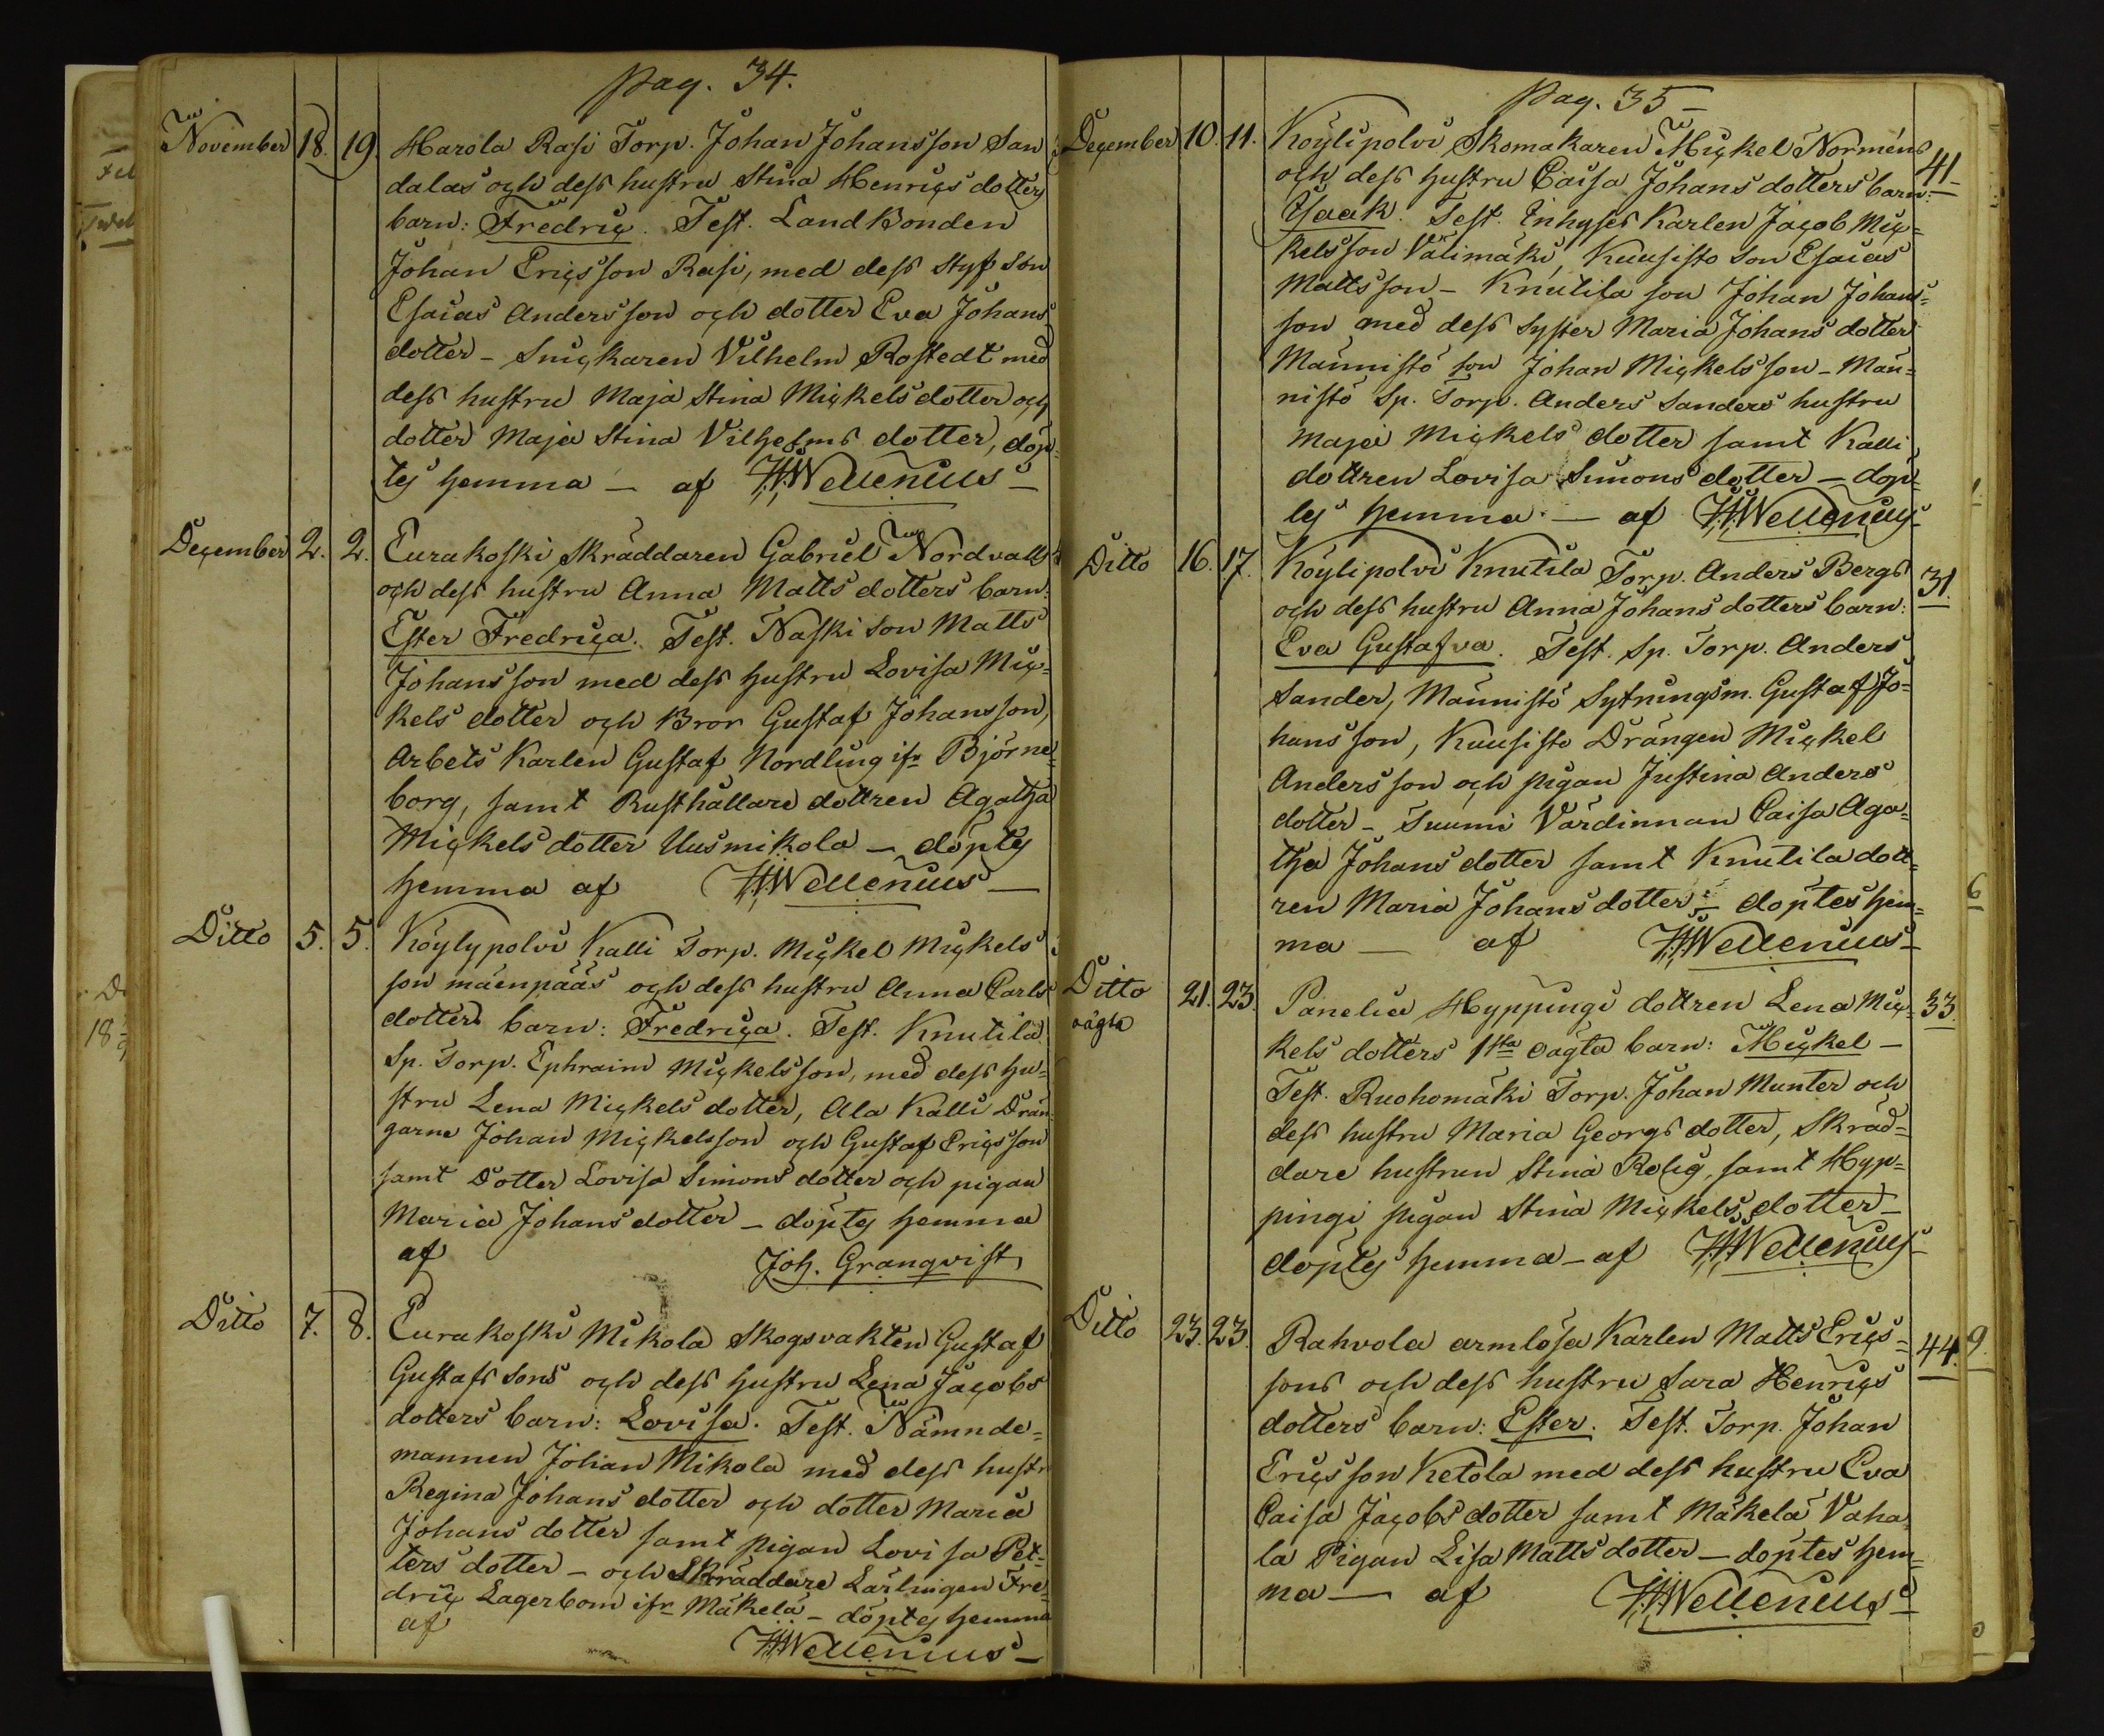 pag. 34.
November 18. 19. Harola Rasi Torp. Johan Johansson San
dalas och dess hustru Stina Henrics dotters
barn: Fredric. Test. Landbonden
Johan Ericsson Rasi, med dess styf son
Esaias Andersson och dotter Eva Johans
dotter – Snickaren Vilhelm Rostedt med
dess hustru Maja Stina Mickels dotter och
dotter Maja Stina Vilhelms dotter, döp-
tes hemma – af HWellenius –
December 2. 2. Eurakoski Skräddaren Gabriel Nordvalls
och dess hustru Anna Matts dotters barn:
Ester Fredrica. Test. Naski son Matts
Johansson med dess hustru Lovisa Mic-
kels dotter och Bror Gustaf Johansson,
Arbets Karlen Gustaf Nordling ifr Björne-
borg, samt Rusthållare dottren Agatha
Mickels dotter Uusmikola – döptes
hemma af HWellenius –
Ditto 5. 5. Köylypolvi Kalli Torp. Mickel Mickels
son mäenpääs och dess hustru Anna Carls
dotters barn: Fredrica. Test. Knutila
Sp. Torp. Ephraim Mickelsson, med dess hu-
stru Lena Mickels dotter, Ala Kalli Drän-
garne Johan Mickelsson och Gustaf Ericsson
samt Dotter Lovisa Simons dotter och pigan
Maria Johans dotter – döptes hemma
af Joh. Granqvist
Ditto 7. 8. Eurakoski Mikola Skogsvakten Gustaf
Gustafs sons och dess hustru Lena Jacobs
dotters barn: Lovisa. Test. Nämnde-
mannen Johan Mikola med dess hustr
Regina Johans dotter och dotter Maria
Johans dotter samt pigan Lovisa Pet-
ters dotter – och Skräddare Lärlingen Fre-
dric Lagerbom ifr Mäkelä – döptes hemma
af HWellenius –
pag. 35 –
December 10. 11. Köylipolvi Skomakaren Mickel Norméns 41
och dess hustru Caisa Johans dotters barn:
Isaak. Test. Inhyses Karlen Jacob Mic-
kelsson Välimäki, Kuusisto Son Esaias
Mattsson – Knutila son Johan Johans-
son med dess syster Maria Johans dotter
Männistö son Johan Mickelsson – Män-
nistö Sp. Torp. Anders Sanders hustru
Maja Mickels dotter samt Kalli
dottren Lovisa Simons dotter – döp-
tes hemma – af HWellenius
Ditto 16. 17. Köylipolvi Knutila Torp. Anders Bergs 31.
och dess hustru Anna Johans dotters barn:
Eva Gustafva. Test. Sp. Torp. Anders
Sander, Männistö Sytningsm. Gustaf Jo-
hansson, Kuusisto Drängen Mickel
Andersson och pigan Justina Anders
dotter – Suumi Värdinnan Caisa Aga-
tha Johans dotter samt Knutila dott-
ren Maria Johans dotter – döptes hem-
ma – af HWellenius –
Ditto 21. 23. Panelia Hyppingi dottren Lena Mic- 33.
oägta kels dotters 1sta oägta barn: Mickel –
Test. Ruohomäki Torp. Johan Munter och
dess hustru Maria Georgs dotter, Skräd-
dare hustrun Stina Relig, samt Hyp-
pingi pigan Stina Mickels dotter –
döptes hemma – af HWellenius
Ditto 23. 23. Rahvola armlösa Karlen Matts Erics- 44.
sons och dess hustru Sara Henrics
dotters barn: Ester. Test. Torp. Johan
Ericsson Ketola med dess hustru Eva
Caisa Jacobs dotter samt Mäkelä Vaha
la Pigan Lisa Matts dotter – döptes hem-
ma – af HWellenius –